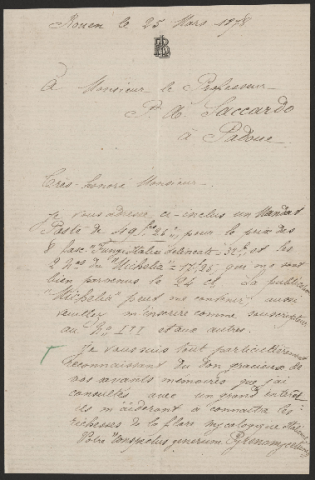 Rouen le 25 Mars 1878
À Monsieur le Professeur
P. A. Saccardo
à Padoue
Très-honoré Monsieur
Je vous adresse, ci-inclus un Mandat
Poste de 49 frs pour le prix des
8 fasc. "Fungi Italici delineati" 32 f. et les
2 Nos du "Michelia" = qui me sont
bien parvenus le 24 ct. La publication
"Michelia" peut me aussi
veuillez m'inscrire comme souscripteur
au No III et aux autres.
Je vous suis tout particulièrement
reconnaissant du don gracieux de
vos savants mémoires que j'ai
consultés avec un grand intérêt
ils m'aideront à connaître les
richesses de la flore mycologique
Votre "Conspectus generum Pyrenomycetum